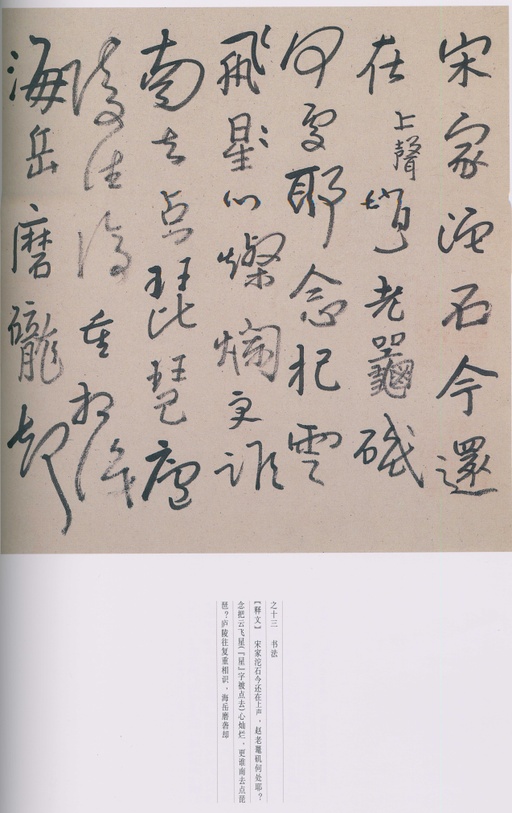 宋家沱石今還
在上聲趙老鼉磯
何處耶念把雲
飛星心燦爛更誰
南去点琵琶廬
陵往復重相識
海岳磨礲却
之十三 书法
【释文】 宋家沱石今还在上声，赵老鼍机何处耶？
念把云飞星(『星』字被点去)心灿烂，更谁南去点琵
琶？庐陵往复重相识，海岳磨砻却